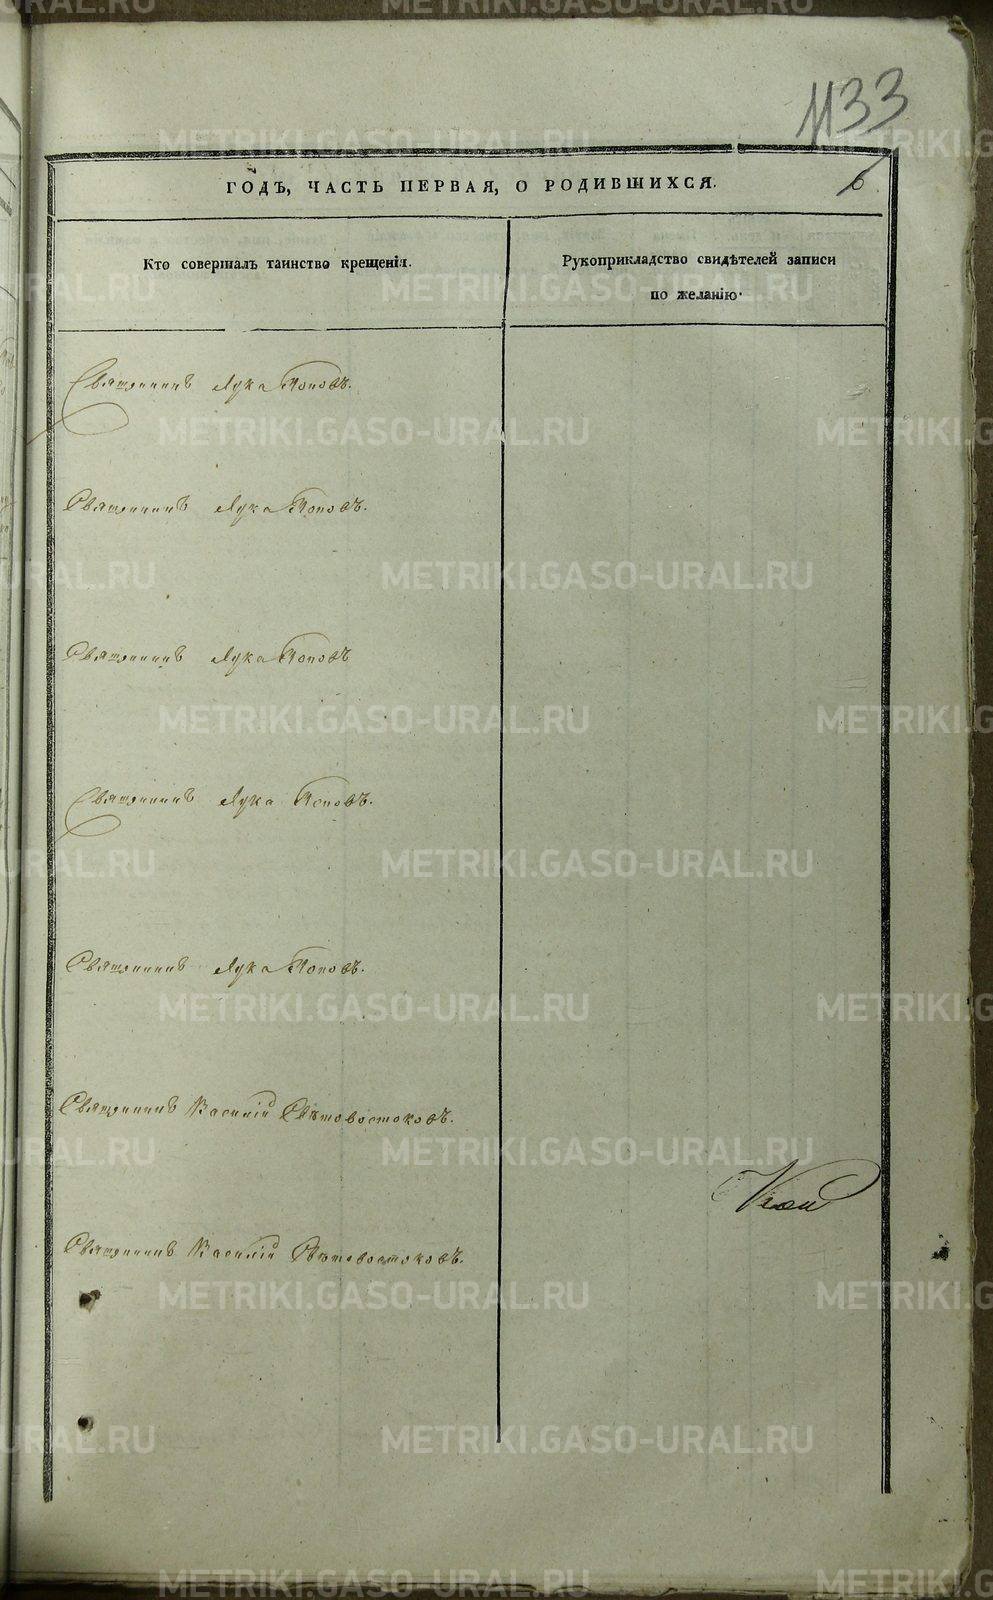 1133
ГОДЪ, ЧАСТЬ ПЕРВАЯ, О РОДИВШИХСЯ.
6
Кто совершалъ таинство крещенія.
Рукоприкладство свидѣтелей записи
по желанію.
Священникъ Лука Поповъ.
Священникъ Лука Поповъ.
Священникъ Лука Поповъ
Священникъ Лука Поповъ.
Священникъ Лука Поповъ.
Священникъ Василій Свѣтовостоковъ.
Священникъ Василій Свѣтовостоковъ.
METRIKI.GASO-URAL.RU